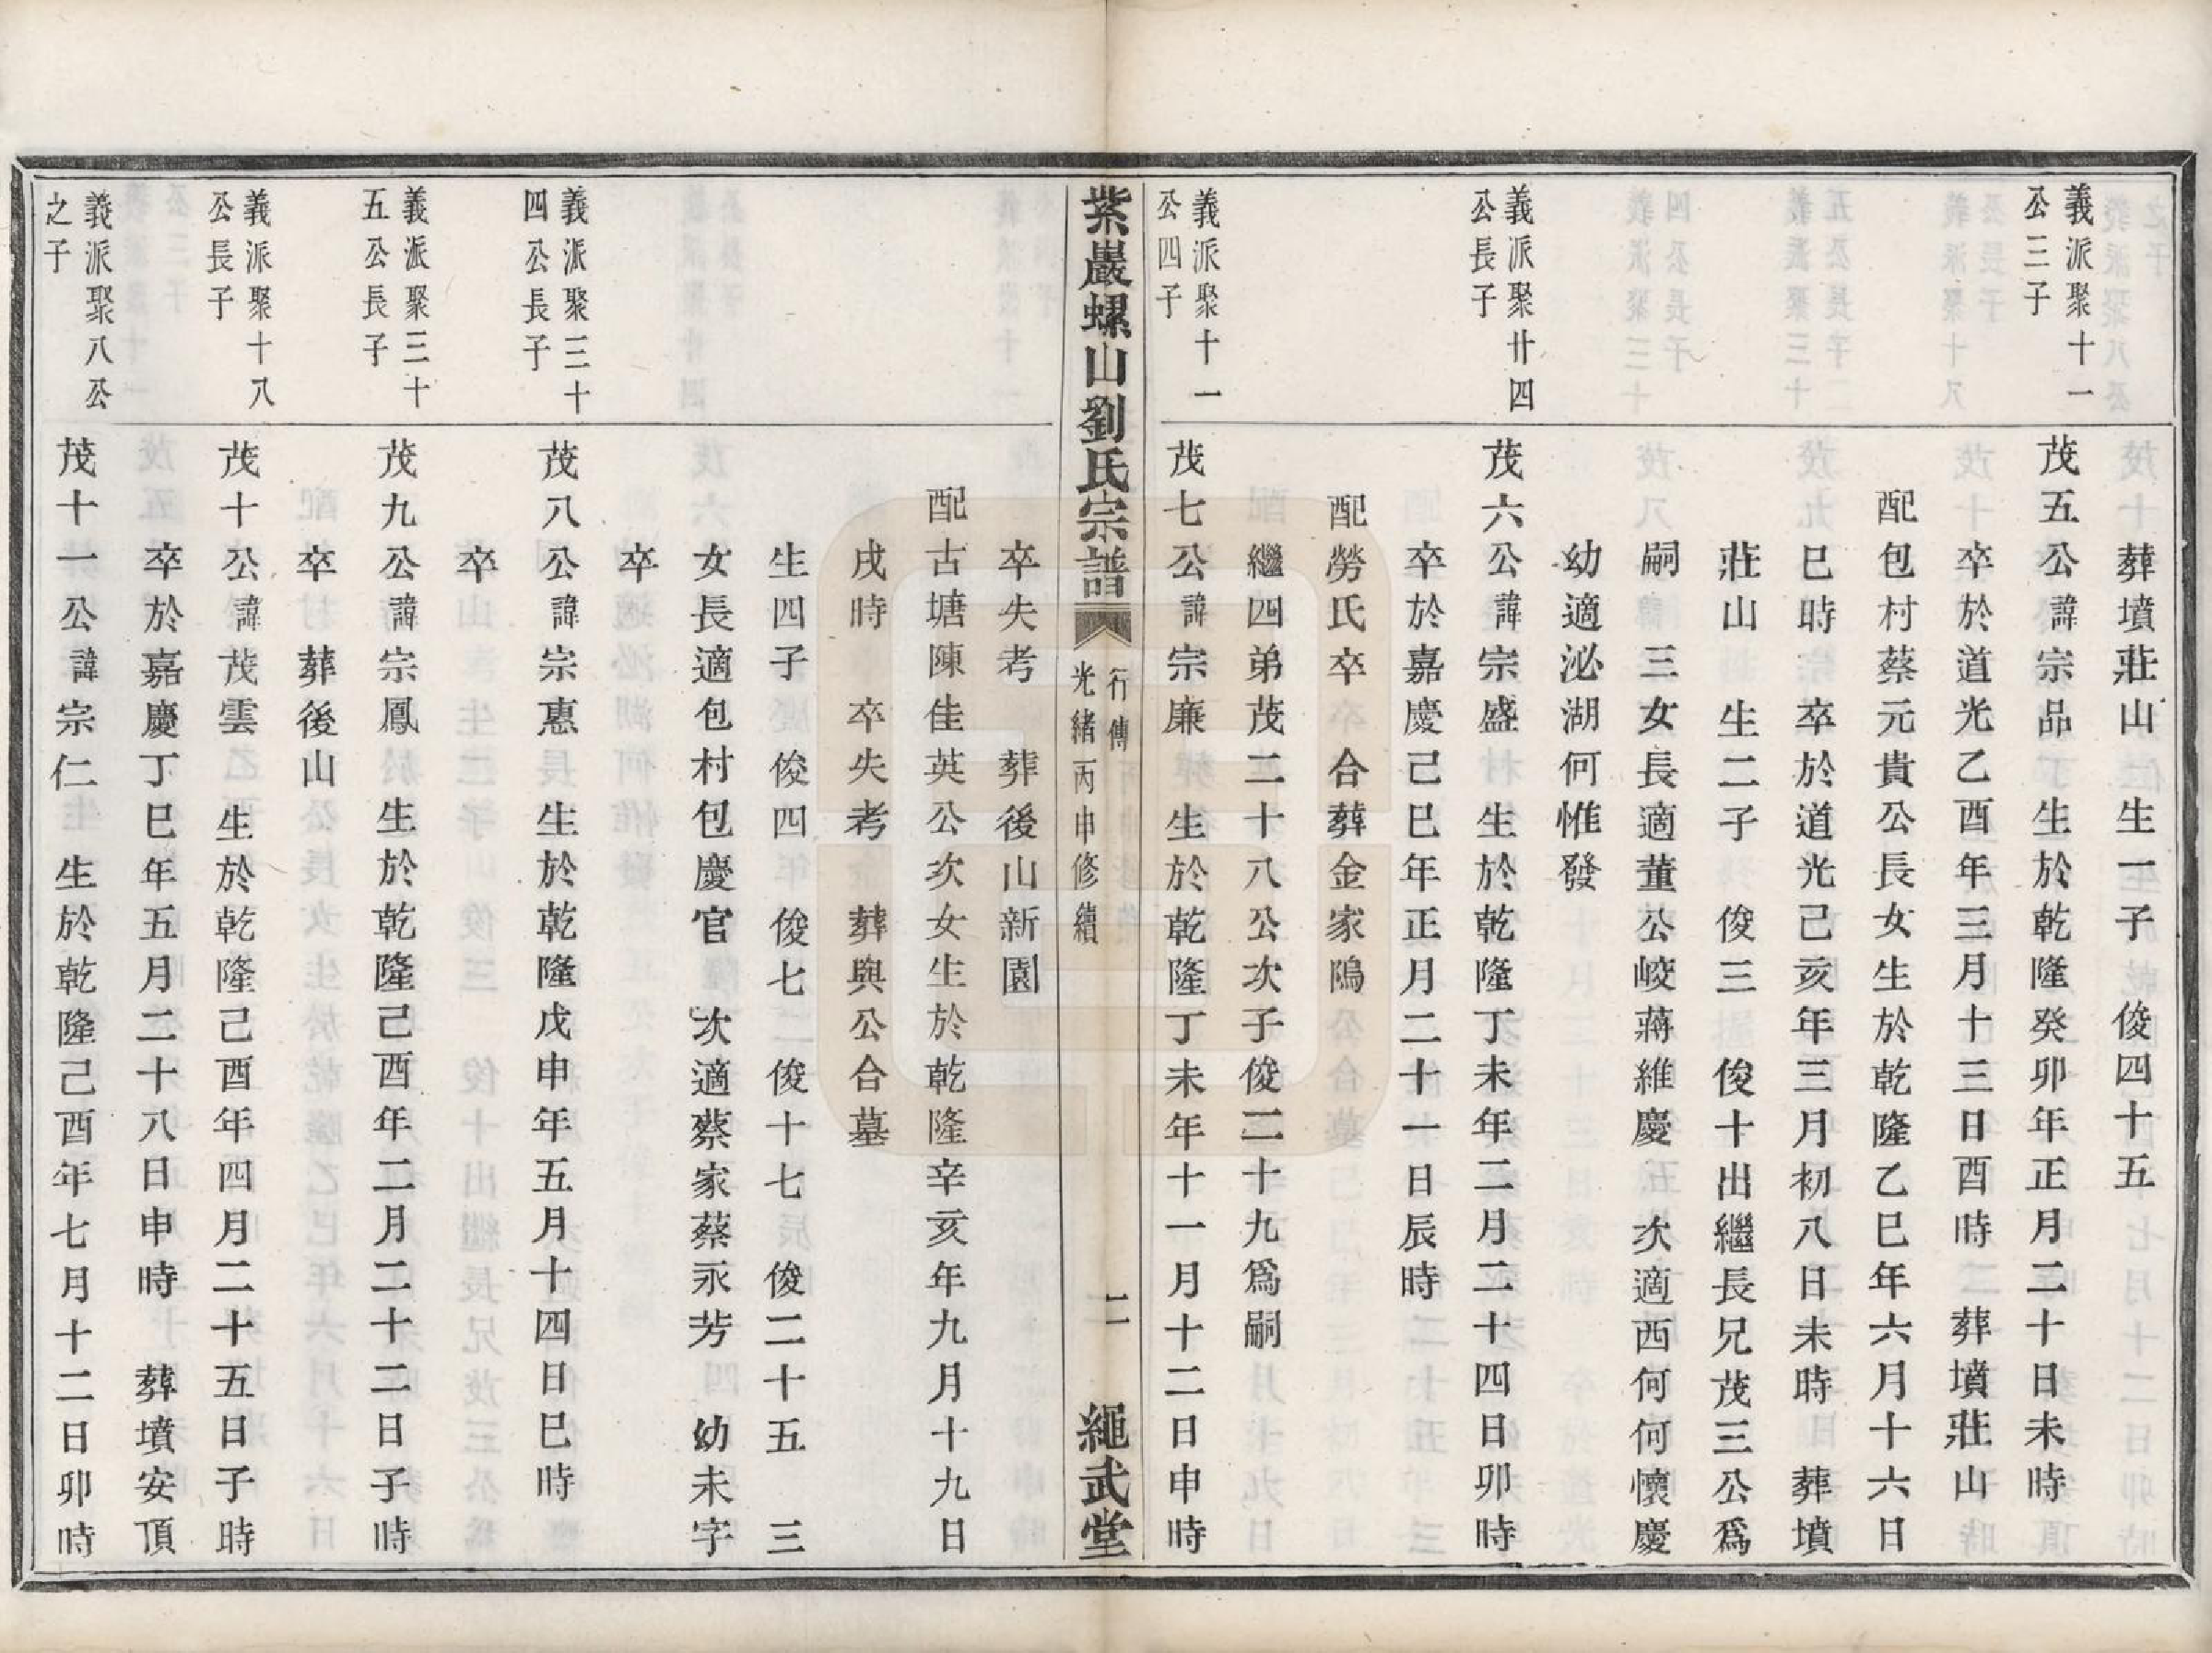 葬墳莊山　生一子　俊四十五
義派聚十一
公三子
茂五公諱宗品　生於乾隆癸卯年正月二十日未時
卒於道光乙酉年三月十三日酉時　葬墳莊山
配包村蔡元貴公長女生於乾隆乙巳年六月十六日
巳時　卒於道光己亥年三月初八日未時　葬墳
莊山　生二子　俊三　俊十出繼長兄茂三公爲
嗣　三女長適董公㟍蔣維慶　次適西何何懷慶
幼適泌湖何惟發
義派聚廿四
公長子
茂六公諱宗盛　生於乾隆丁未年二月二十四日卯時
卒於嘉慶己巳年正月二十一日辰時
配勞氏卒　合葬金家隝
繼四弟茂二十八公次子俊二十九爲嗣
義派聚十一
公四子
茂七公諱宗廉　生於乾隆丁未年十一月十二日申時
紫巖螺山劉氏宗譜
行傳
光緒丙申修續
二
繩武堂
卒失考　葬後山新園
配古塘陳佳英公次女生於乾隆辛亥年九月十九日
戌時　卒失考　葬與公合墓
生四子　俊四　俊七　俊十七　俊二十五　三
女長適包村包慶官　次適蔡家蔡永芳　幼未字
卒
義派聚三十
四公長子
茂八公諱宗惠　生於乾隆戊申年五月十四日巳時
卒
義派聚三十
五公長子
茂九公諱宗鳳　生於乾隆己酉年二月二十二日子時
卒　葬後山
義派聚十八
公長子
茂十公諱茂雲　生於乾隆己酉年四月二十五日子時
卒於嘉慶丁巳年五月二十八日申時　葬墳安頂
義派聚八公
之子
茂十一公諱宗仁　生於乾隆己酉年七月十二日卯時